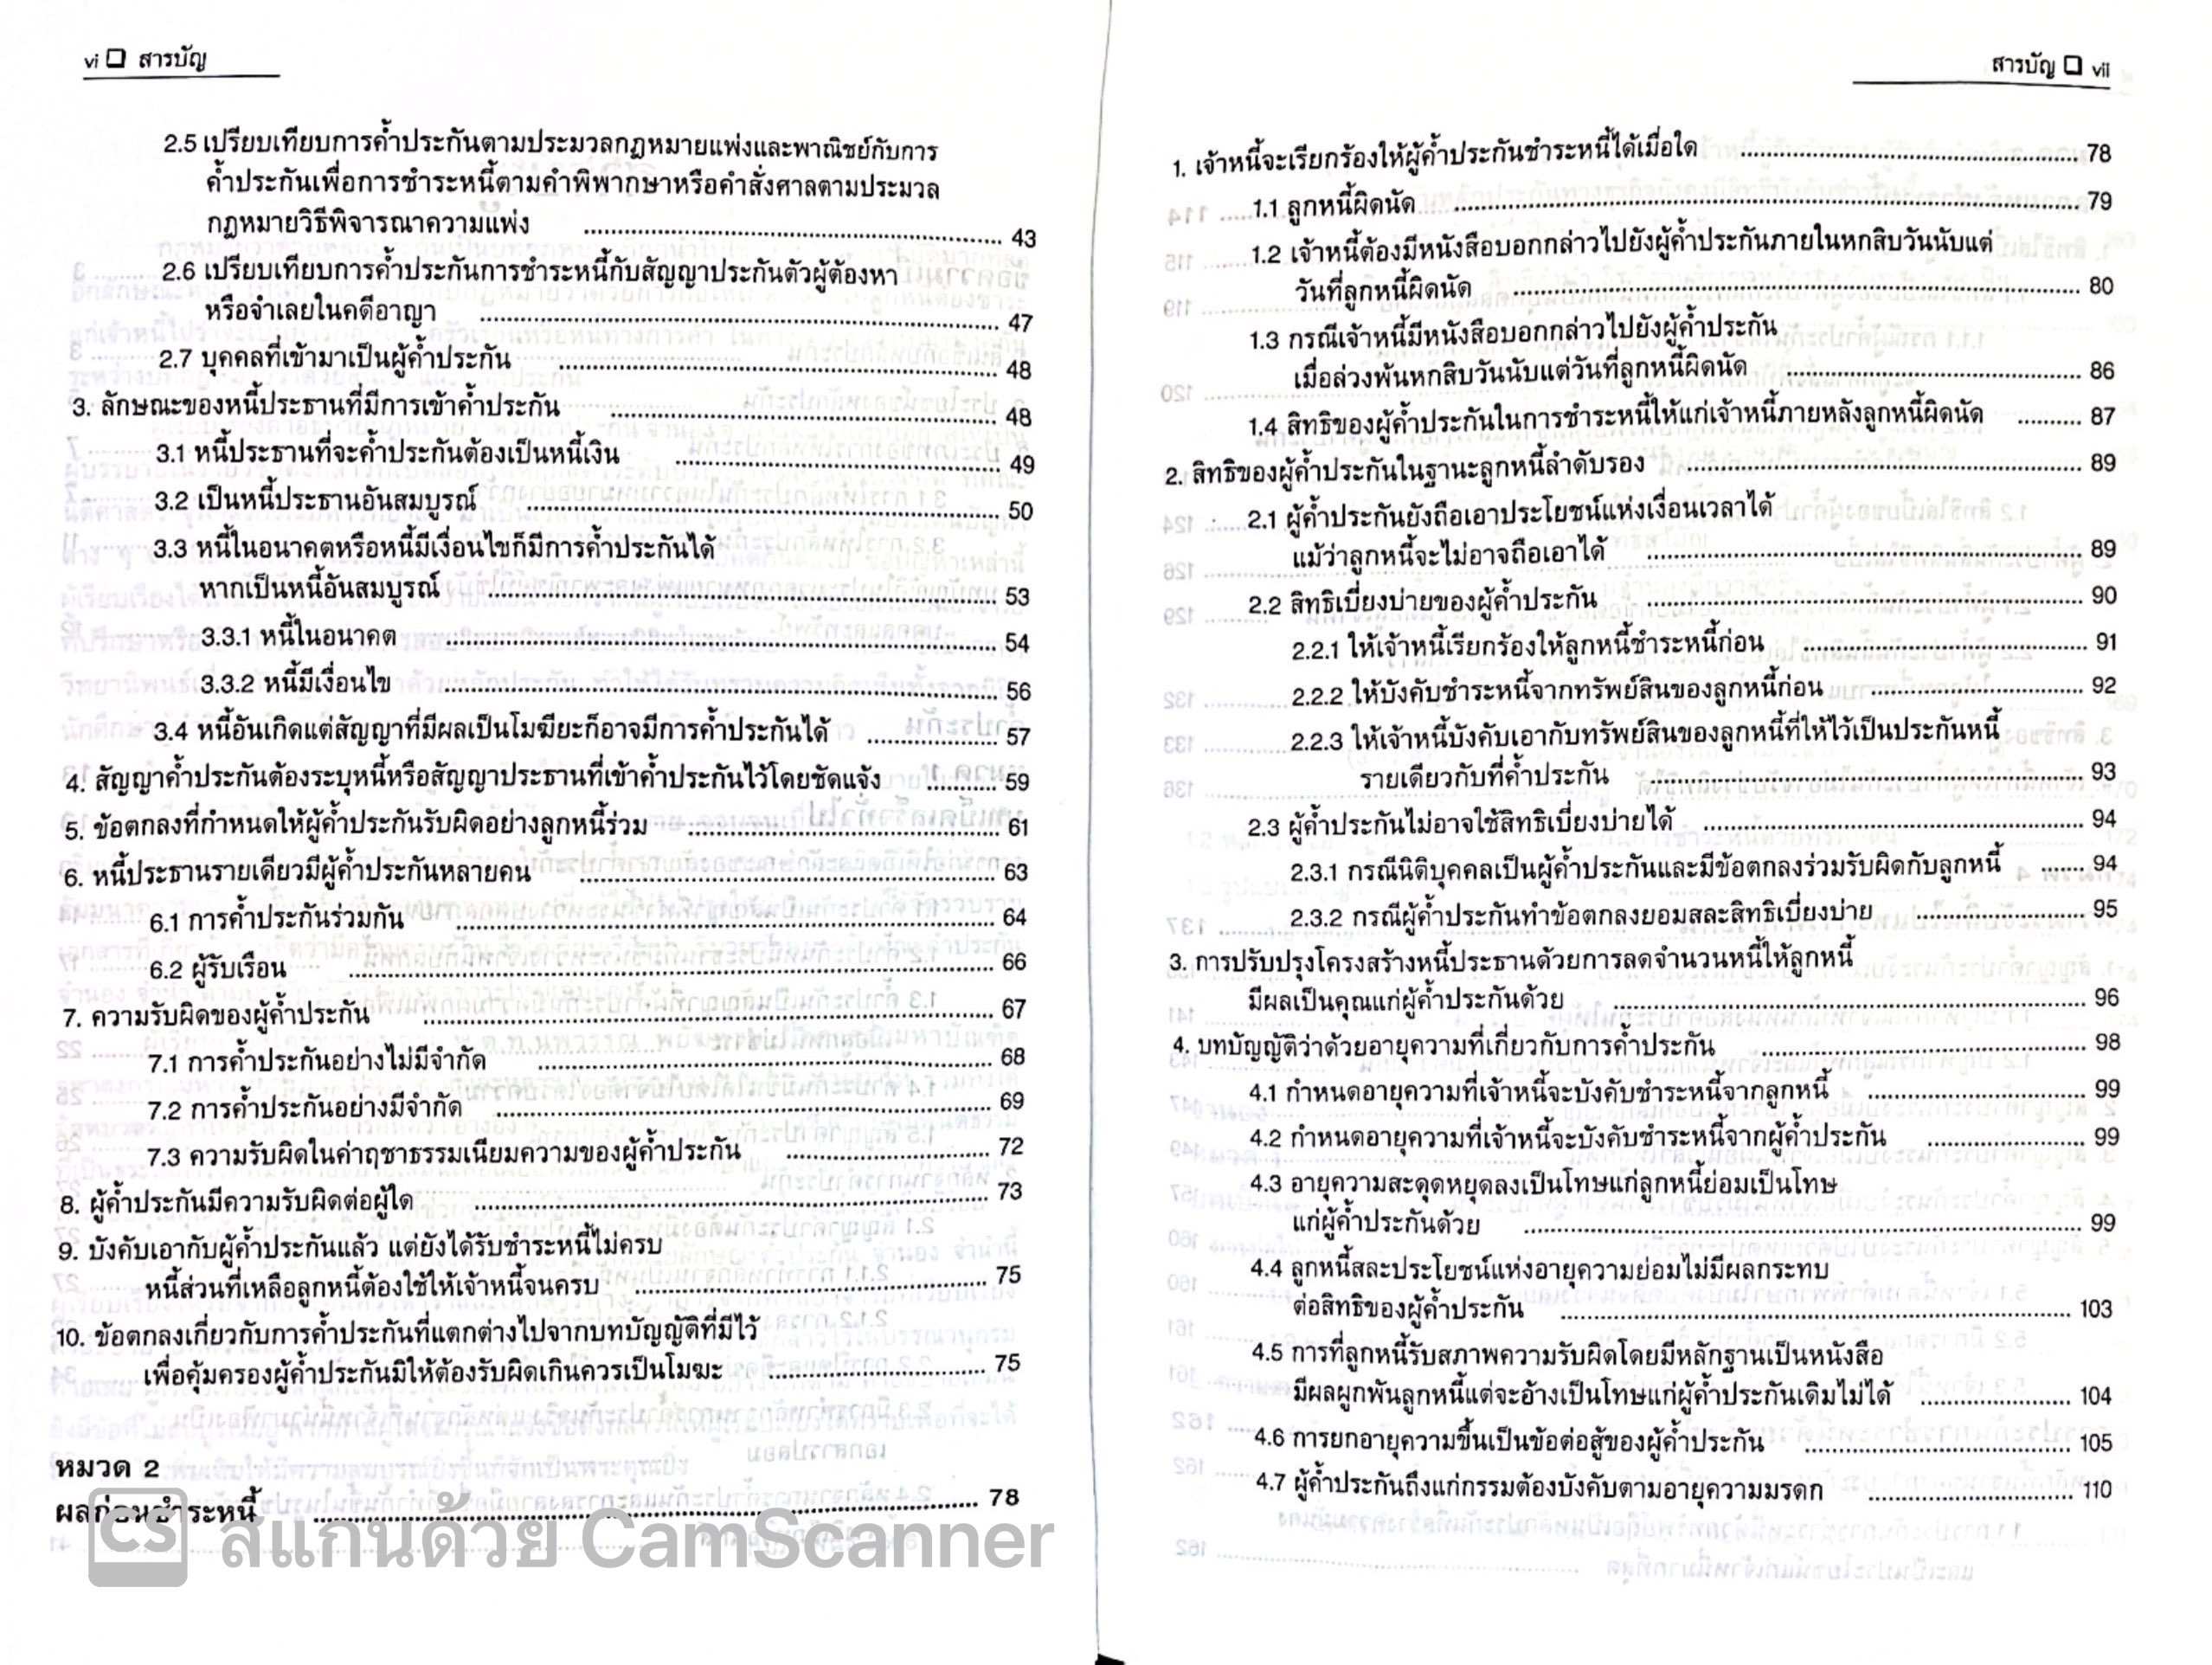 vi ❑ สารบัญ
2.5 เปรียบเทียบการค้ำประกันตามประมวลกฎหมายแพ่งและพาณิชย์กับการ
ค้ำประกันเพื่อการชำระหนี้ตามคำพิพากษาหรือคำสั่งศาลตามประมวล
กฎหมายวิธีพิจารณาความแพ่ง ........ 43
2.6 เปรียบเทียบการค้ำประกันการชำระหนี้กับสัญญาประกันตัวผู้ต้องหา
หรือจำเลยในคดีอาญา ........ 47
2.7 บุคคลที่เข้ามาเป็นผู้ค้ำประกัน ........ 48
3. ลักษณะของหนี้ประธานที่มีการเข้าค้ำประกัน ........ 48
3.1 หนี้ประธานที่จะค้ำประกันต้องเป็นหนี้เงิน ........ 49
3.2 เป็นหนี้ประธานอันสมบูรณ์ ........ 50
3.3 หนี้ในอนาคตหรือหนี้มีเงื่อนไขก็มีการค้ำประกันได้
หากเป็นหนี้อันสมบูรณ์ ........ 53
3.3.1 หนี้ในอนาคต ........ 54
3.3.2 หนี้มีเงื่อนไข ........ 56
3.4 หนี้อันเกิดแต่สัญญาที่มีผลเป็นโมฆียะก็อาจมีการค้ำประกันได้ ........ 57
4. สัญญาค้ำประกันต้องระบุหนี้หรือสัญญาประธานที่เข้าค้ำประกันไว้โดยชัดแจ้ง ........ 59
5. ข้อตกลงที่กำหนดให้ผู้ค้ำประกันรับผิดอย่างลูกหนี้ร่วม ........ 61
6. หนี้ประธานรายเดียวมีผู้ค้ำประกันหลายคน ........ 63
6.1 การค้ำประกันร่วมกัน ........ 64
6.2 ผู้รับเรือน ........ 66
7. ความรับผิดของผู้ค้ำประกัน ........ 67
7.1 การค้ำประกันอย่างไม่มีจำกัด ........ 68
7.2 การค้ำประกันอย่างมีจำกัด ........ 69
7.3 ความรับผิดในค่าฤชาธรรมเนียมความของผู้ค้ำประกัน ........ 72
8. ผู้ค้ำประกันมีความรับผิดต่อผู้ใด ........ 73
9. บังคับเอากับผู้ค้ำประกันแล้ว แต่ยังได้รับชำระหนี้ไม่ครบ
หนี้ส่วนที่เหลือลูกหนี้ต้องใช้ให้เจ้าหนี้จนครบ ........ 75
10. ข้อตกลงเกี่ยวกับการค้ำประกันที่แตกต่างไปจากบทบัญญัติที่มีไว้
เพื่อคุ้มครองผู้ค้ำประกันมิให้ต้องรับผิดเกินควรเป็นโมฆะ ........ 75
หมวด 2
ผลก่อนชำระหนี้ ........ 78
CS สแกนด้วย CamScanner
สารบัญ ❑ vii
1. เจ้าหนี้จะเรียกร้องให้ผู้ค้ำประกันชำระหนี้ได้เมื่อใด ........ 78
1.1 ลูกหนี้ผิดนัด ........ 79
1.2 เจ้าหนี้ต้องมีหนังสือบอกกล่าวไปยังผู้ค้ำประกันภายในหกสิบวันนับแต่
วันที่ลูกหนี้ผิดนัด ........ 80
1.3 กรณีเจ้าหนี้มีหนังสือบอกกล่าวไปยังผู้ค้ำประกัน
เมื่อล่วงพ้นหกสิบวันนับแต่วันที่ลูกหนี้ผิดนัด ........ 86
1.4 สิทธิของผู้ค้ำประกันในการชำระหนี้ให้แก่เจ้าหนี้ภายหลังลูกหนี้ผิดนัด ........ 87
2. สิทธิของผู้ค้ำประกันในฐานะลูกหนี้ลำดับรอง ........ 89
2.1 ผู้ค้ำประกันยังถือเอาประโยชน์แห่งเงื่อนเวลาได้
แม้ว่าลูกหนี้จะไม่อาจถือเอาได้ ........ 89
2.2 สิทธิเบี่ยงบ่ายของผู้ค้ำประกัน ........ 90
2.2.1 ให้เจ้าหนี้เรียกร้องให้ลูกหนี้ชำระหนี้ก่อน ........ 91
2.2.2 ให้บังคับชำระหนี้จากทรัพย์สินของลูกหนี้ก่อน ........ 92
2.2.3 ให้เจ้าหนี้บังคับเอากับทรัพย์สินของลูกหนี้ที่ให้ไว้เป็นประกันหนี้
รายเดียวกับที่ค้ำประกัน ........ 93
2.3 ผู้ค้ำประกันไม่อาจใช้สิทธิเบี่ยงบ่ายได้ ........ 94
2.3.1 กรณีนิติบุคคลเป็นผู้ค้ำประกันและมีข้อตกลงร่วมรับผิดกับลูกหนี้ ........ 94
2.3.2 กรณีผู้ค้ำประกันทำข้อตกลงยอมสละสิทธิเบี่ยงบ่าย ........ 95
3. การปรับปรุงโครงสร้างหนี้ประธานด้วยการลดจำนวนหนี้ให้ลูกหนี้
มีผลเป็นคุณแก่ผู้ค้ำประกันด้วย ........ 96
4. บทบัญญัติว่าด้วยอายุความที่เกี่ยวกับการค้ำประกัน ........ 98
4.1 กำหนดอายุความที่เจ้าหนี้จะบังคับชำระหนี้จากลูกหนี้ ........ 99
4.2 กำหนดอายุความที่เจ้าหนี้จะบังคับชำระหนี้จากผู้ค้ำประกัน ........ 99
4.3 อายุความสะดุดหยุดลงเป็นโทษแก่ลูกหนี้ย่อมเป็นโทษ
แก่ผู้ค้ำประกันด้วย ........ 99
4.4 ลูกหนี้สละประโยชน์แห่งอายุความย่อมไม่มีผลกระทบ
ต่อสิทธิของผู้ค้ำประกัน ........ 103
4.5 การที่ลูกหนี้รับสภาพความรับผิดโดยมีหลักฐานเป็นหนังสือ
มีผลผูกพันลูกหนี้แต่จะอ้างเป็นโทษแก่ผู้ค้ำประกันเดิมไม่ได้ ........ 104
4.6 การยกอายุความขึ้นเป็นข้อต่อสู้ของผู้ค้ำประกัน ........ 105
4.7 ผู้ค้ำประกันถึงแก่กรรมต้องบังคับตามอายุความมรดก ........ 110